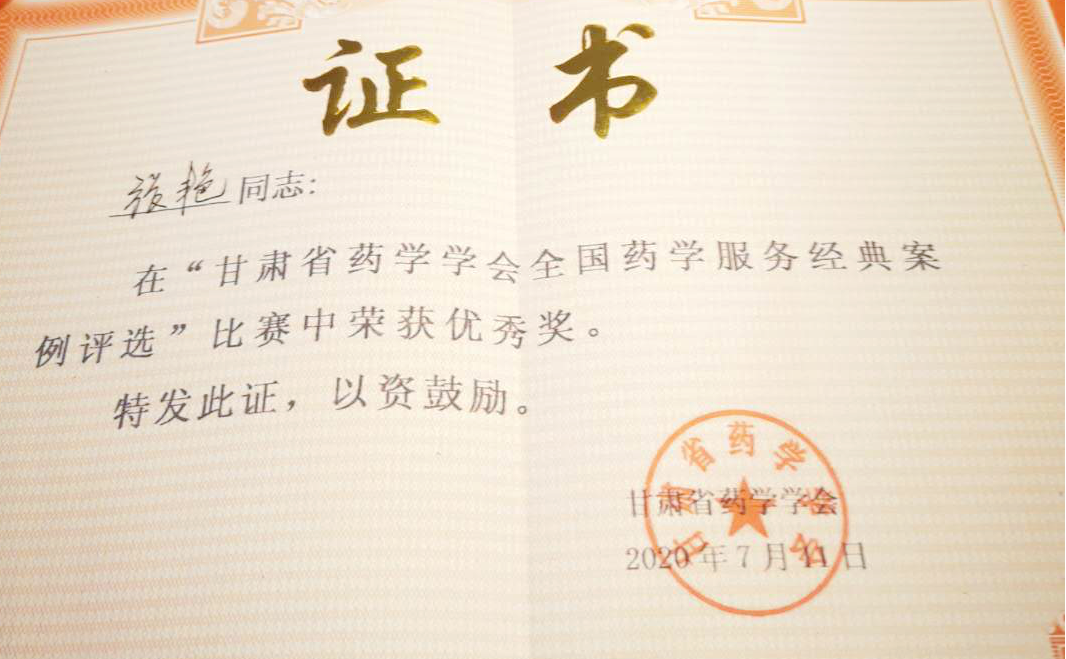 证书
张艳同志：
在“甘肃省药学学会全国药学服务经典案
例评选”比赛中荣获优秀奖。
特发此证，以资鼓励。
甘肃省药学学会
2020年7月11日
甘肃省药学学会